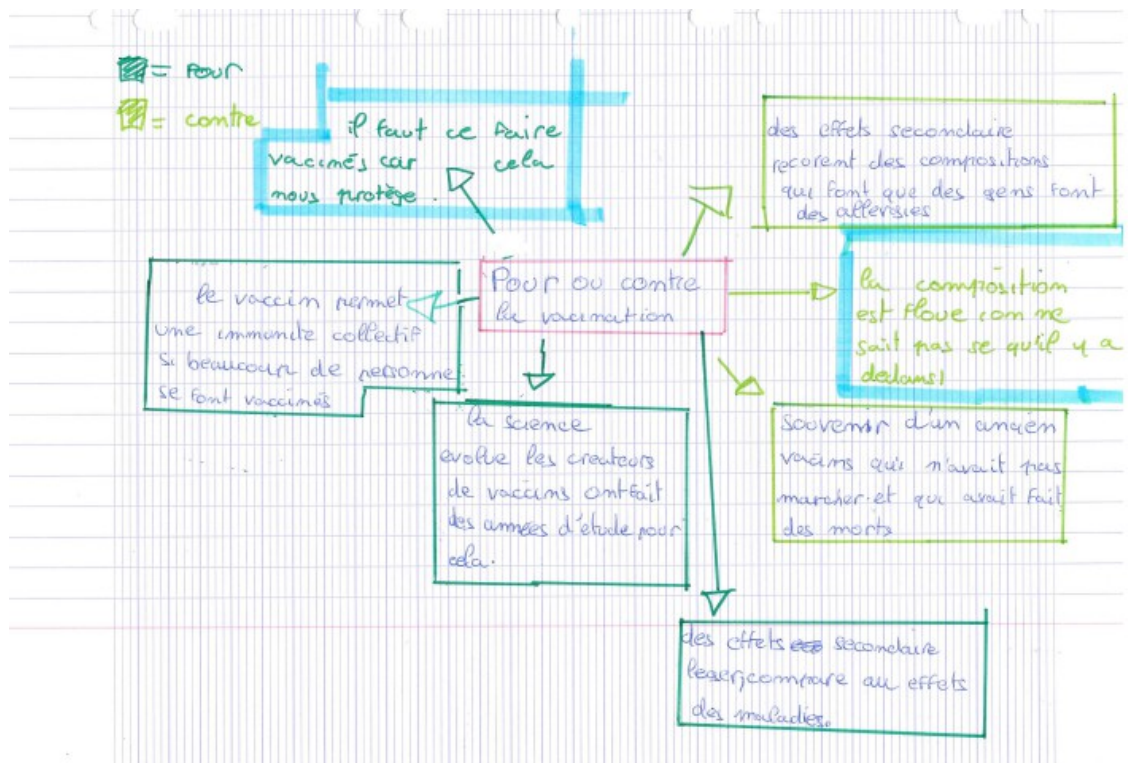 = Pour
= contre
il faut ce faire
vaccinés car cela
nous protège.
des effets secondaire
des compositions
qui font que des gens font
des allergies
le vaccin permet
une immunité collectif
si beaucoup de personne
se font vaccinés
Pour ou contre
la vaccination
la composition
est floue on ne
sait pas se qu'il y a
dedans!
la science
evolue les createurs
de vaccins ont fait
des années d'étude pour
cela.
Souvenir d'un ancien
vaccins qui n'avait pas
marcher et qui avait fait
des morts
des effets secondaire
leger, compare au effets
des maladies.